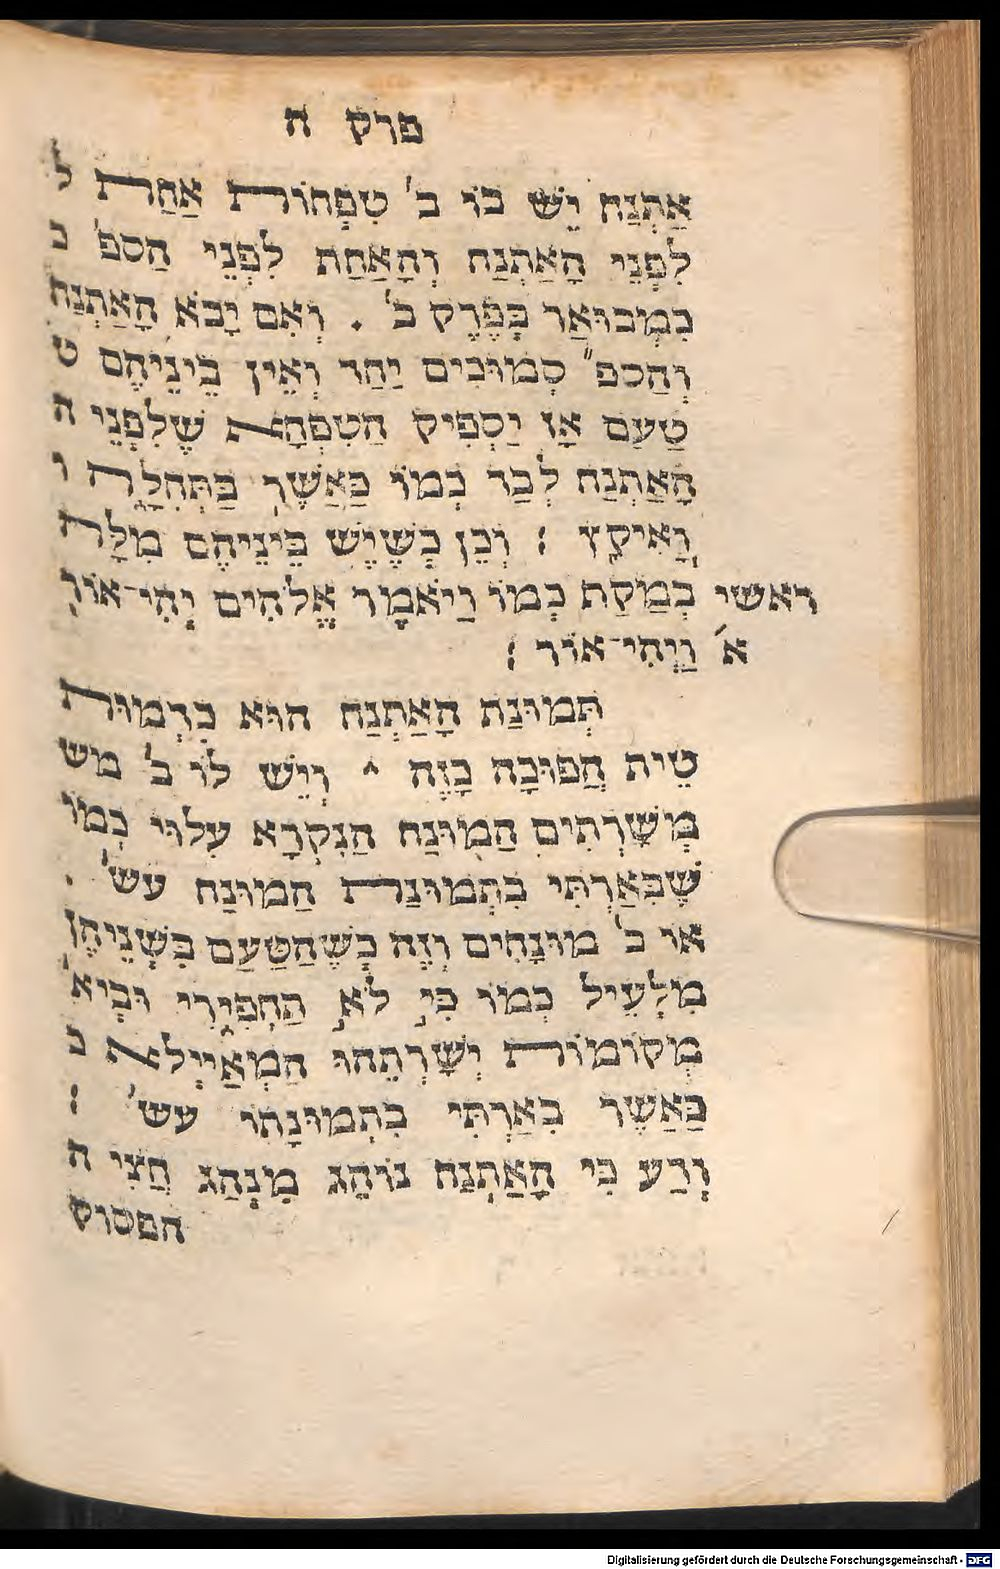 פרק ח
אַתְנַח יֵשׁ בּוֹ ב' טִפְחוֹת אַחַת ל
לִפְנֵי הָאַתְנַח וְהָאַחַת לִפְנֵי הַסּפ' כ
כִּמְבוּאַר בְּפֶרֶק ב' . וְאִם יָבֹא הָאַתְנַח
וְהַסּפ" סְמוּכִים יַחַד וְאֵין בֵּינֵיהֶם ט
טַעַם אָז יַסְפִּיק הַטִּפְחָא שֶׁלִּפְנֵי ה
הָאַתְנַח לְבַד כְּמוֹ כַּאֲשֶׁר בַּתְּחִלָּה ו
וָאִיקָץ : וְכֵן כְּשֶׁיֵּשׁ בֵּינֵיהֶם מִלָּה
ראשי בְּמַקַּף כְּמוֹ וַיֹּאמֶר אֱלֹהִים יְהִי־אוֹר
א' וַיְהִי־אוֹר :
תְּמוּנַת הָאַתְנַח הוּא כִּדְמוּת
טֵית הֲפוּכָה כָּזֶה ^ וְיֵשׁ לוֹ ב' מש
מְשָׁרְתִים הַמּוּנַח הַנִּקְרָא עִלּוּי כְּמוֹ
שֶׁבֵּאַרְתִּי בִּתְמוּנַת הַמּוּנַח עש' .
או ב' מוּנָחִים וְזֶה כְּשֶׁהַטַּעַם בִּשְׁנֵיהֶן
מִלְּעֵיל כְּמוֹ כִּי לֹא הַחְפִּירִי וּבְיא'
מְקוֹמוֹת יְשָׁרְתֵהוּ הַמְּאַיְּלָא כ
כַּאֲשֶׁר בֵּאַרְתִּי בִּתְמוּנָתוֹ עש' :
וְדַע כִּי הָאַתְנַח נוֹהֵג מִנְהַג חֲצִי ה
הפסוק